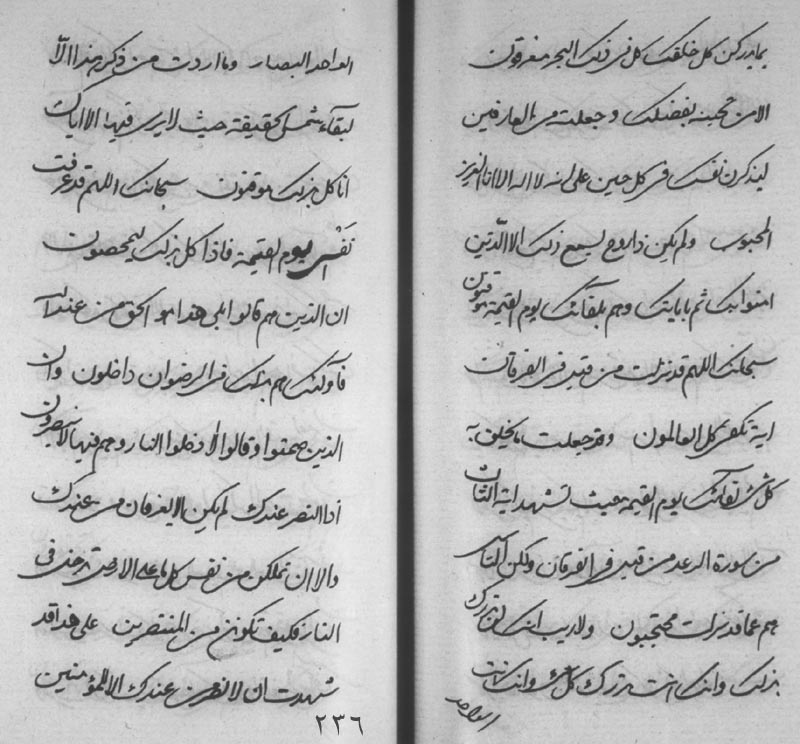 بما يدركن كل خلقك كل في ذلك البحر مغرقون
الا من تحبينه بفضلك وجعلته من العارفين
ليذكرن نفسك في كل حين على انه لا اله الا انا العزيز
المحبوب ولم يكن ذا روح ليسمع ذلك الا الذين
امنوا بك ثم باياتك وهم بلقائك يوم القيمة موقنون
سبحانك اللهم قد نزلت من قبل في الفرقان
اية تكفي كل العالمون وقد جعلت ما يخلق به
كل شيء لقائك يوم القيمة حيث تشهد اية الثان
من سورة الرعد من قبل في الفرقان ولكن الناس
هم عما قد نزلت محتجبون ولا ريب انك لن تدرك
بذلك وانك انت تدرك كل شيء وانك انت
الواحد
الواحد البصار وما اردت من ذكري هذا الا
لبقاء شمس الحقيقة حيث لا يرى فيها الا اياك
انا كل بذلك موقنون سبحانك اللهم قد عرفت
نفسي يوم القيمة فاذا كل بذلك ليمحصون
ان الذين هم قالوا بلى هذا هو الحق من عند الله
فاولئك هم بذلك في الرضوان داخلون وان
الذين صمتوا وقالوا لا دخلوا النار وهم فيها لا ينصرون
اذا النصر عندك لم يكن الا يعرفان من عندك
والا ان تملكن من نفس كل ما على الارض تدخل في
النار فكيف تكونن من المنتصرين على هذا قد
شهدت ان لا نصر من عندك الا للمؤمنين
٢٣٦